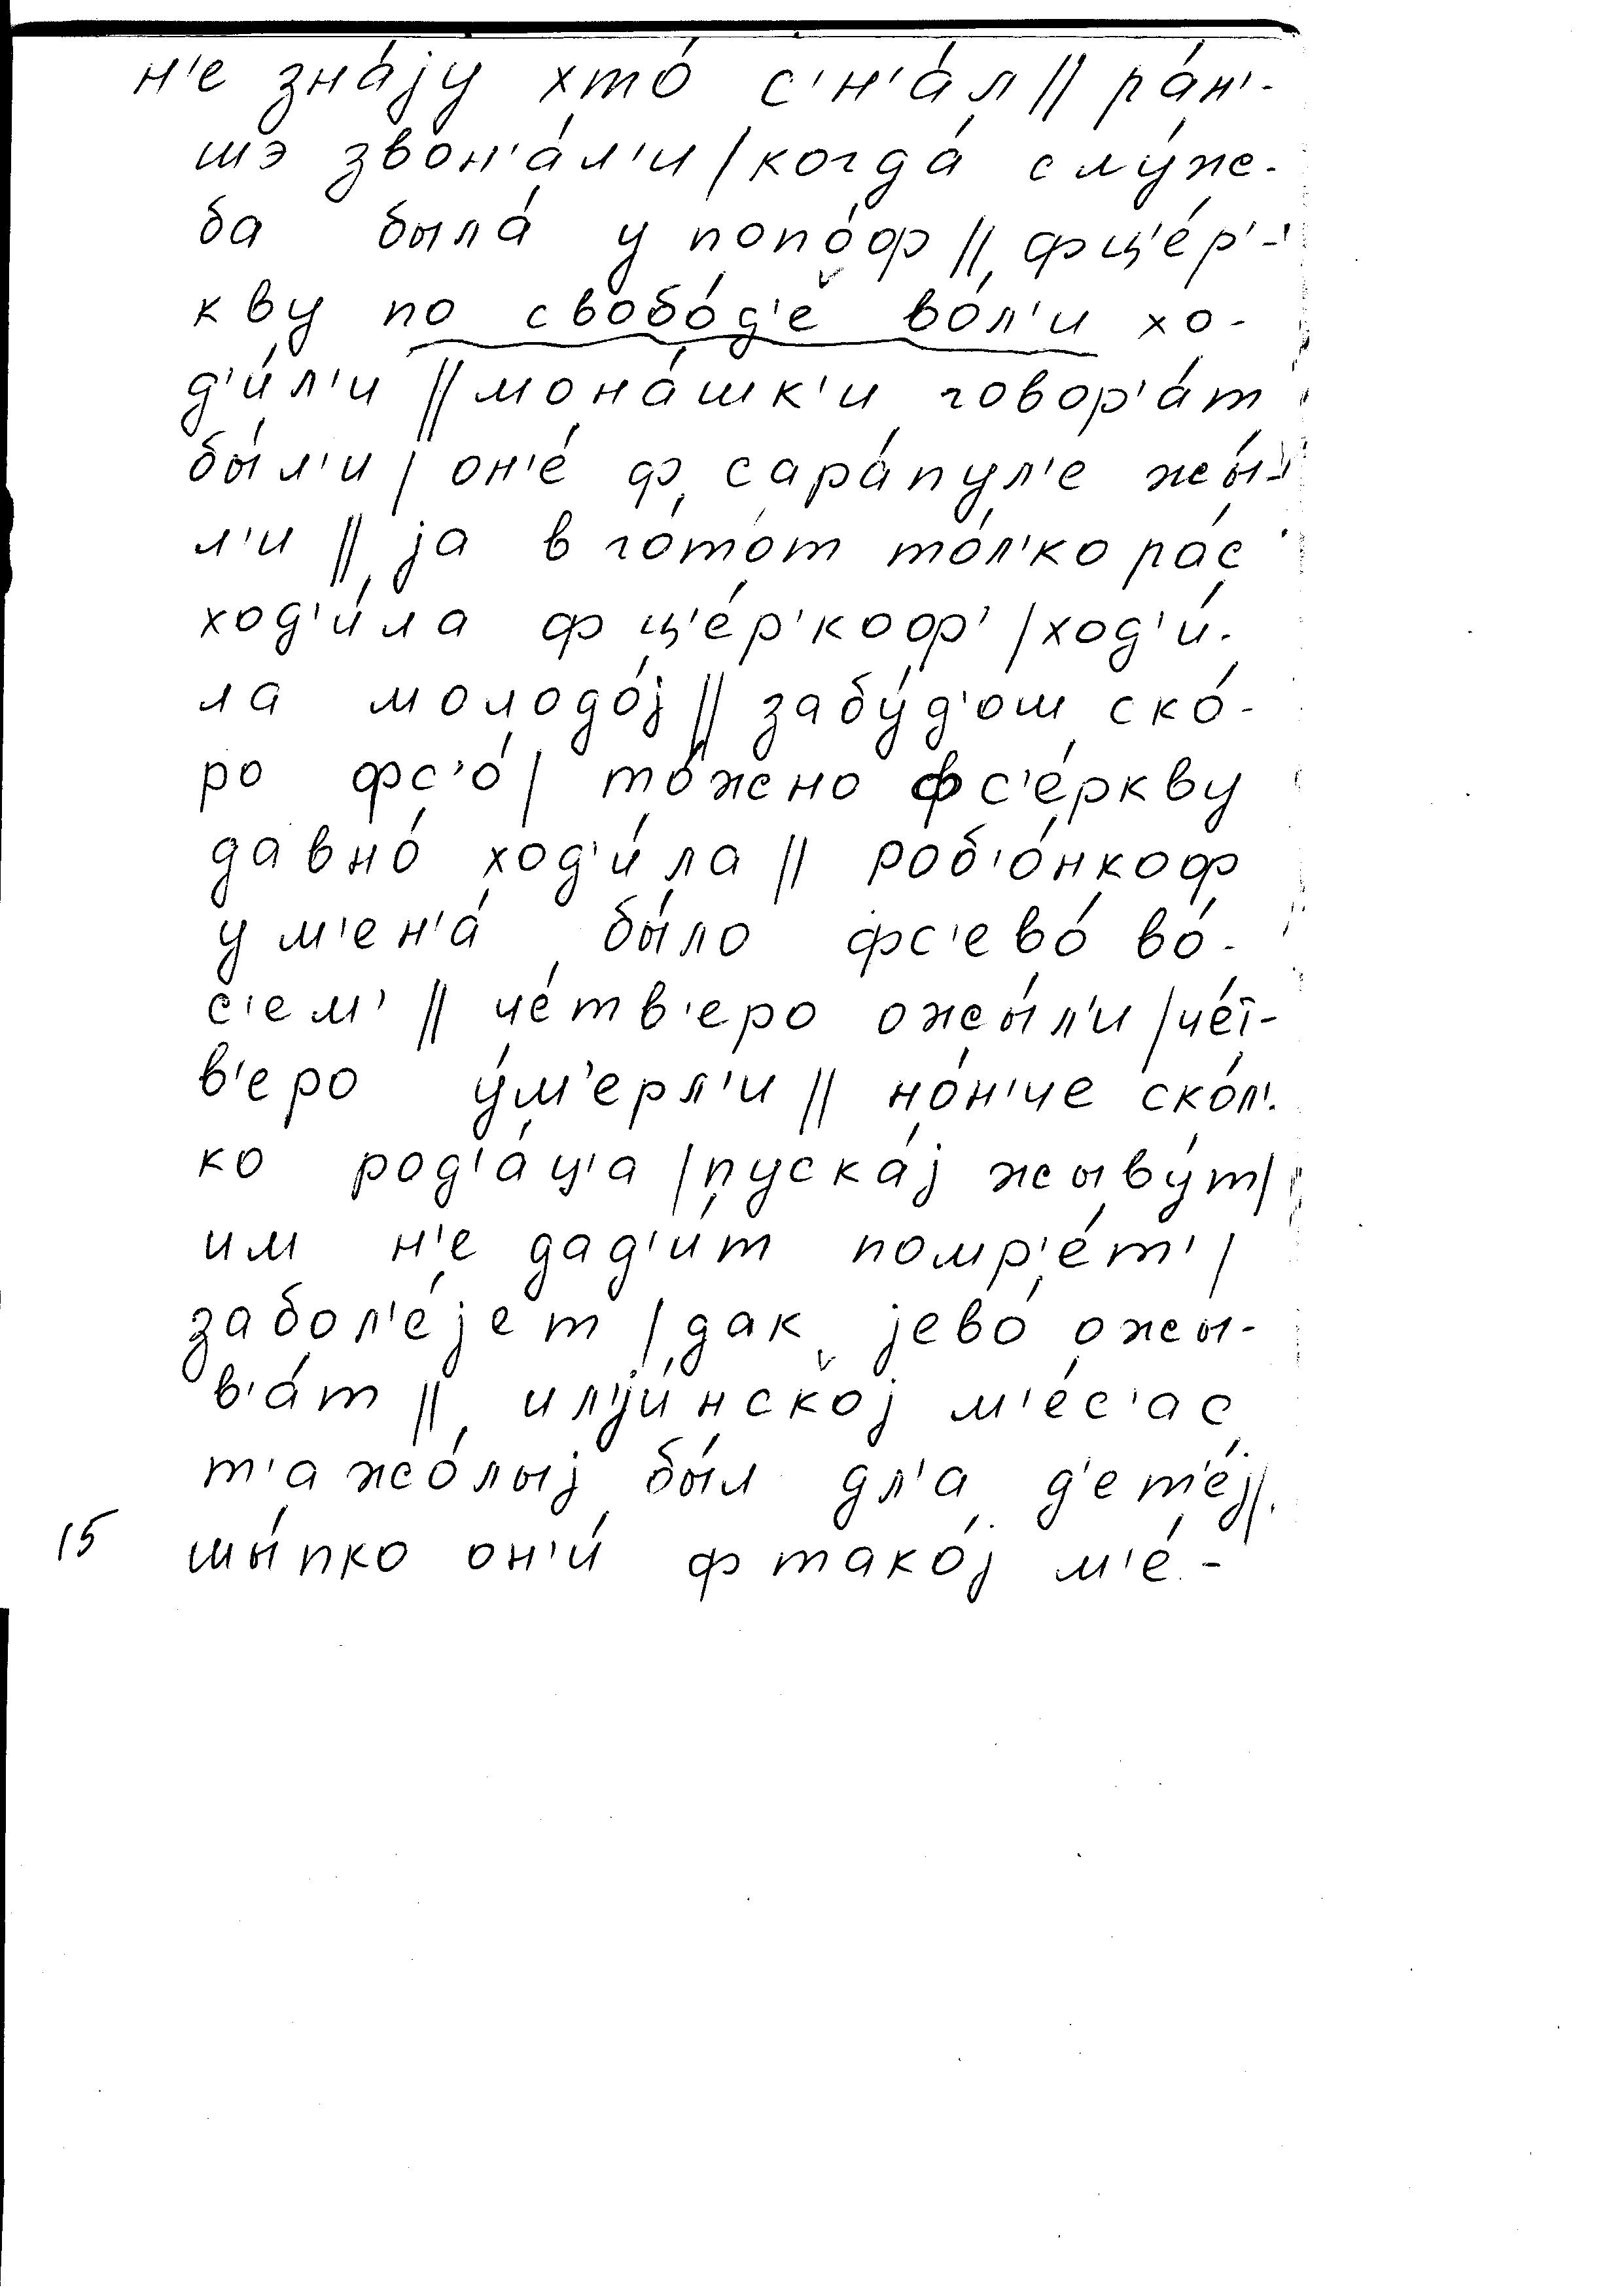 н'е зна́jу хто́ с'н'а́л || ра́н'-
шэ звон'а́л'и | когда́ слу́ж-
ба была́ у попо́ф || ф ц'е́р'-
кву по свобо́д'е во́л'и хо-
д'и́л'и || мона́шк'и говор'а́т
бы́л'и | он'е́ ф сара́пул'е жы́-
л'и || jа в го́то́т то́л'ко ра́с
ход'и́ла ф ц'е́р'кооф' | ход'и́-
ла молодо́j || забу́д'ош ско́-
ро фс'о́ | то́жно ф с'е́ркву
давно́ ход'и́ла || роб'о́нкоф
у м'ен'а́ бы́ло фс'ево́ во́-
с'ем' || че́тв'еро ожы́л'и | че́т-
в'еро у́м'ерл'и || но́н'че ско́л'-
ко род'а́ц'а | пуска́j жыву́т |
им н'е дад'и́т помр'е́т' |
забол'е́jет | дак jево́ ожы-
в'а́т || ил'jи́нскоj м'е́с'ас
т'ажо́лыj бы́л дл'а д'ет'е́j ||
15 шы́пко он'и́ ф тако́j м'е́-